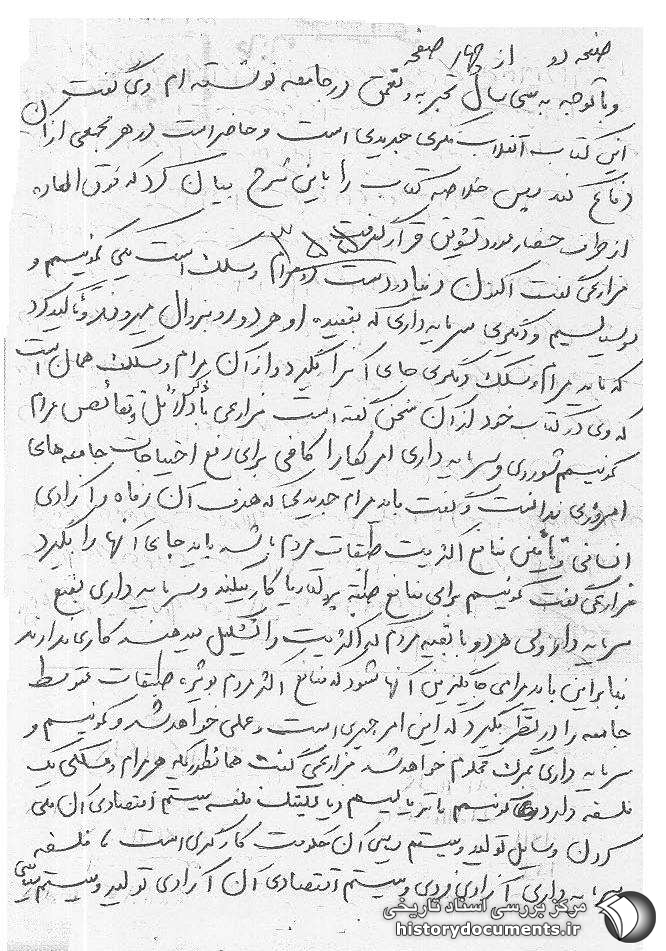 صفحه دو از چهار صفحه
و با توجه به سی سال تجربه و تعمق در جامعه نوشته ام وی گفت
این کتاب انقلاب فکری جدیدی است و حاضر است در هر مجمعی از آن
دفاع کند سپس خلاصه کتاب را باین شرح بیان کرد که فوق العاده
از طرف حضار مورد تشویق قرار گرفت
خزارعی گفت اکنون دنیا در دست دو مرام و مسلک است یکی کمونیسم و
سوسیالیسم و دیگری سرمایه داری که بعقیده او هر دو رو بزوال میروند و تاکید کرد
که باید مرام و مسلک دیگری جای آنرا بگیرد و از آن مرام و مسلک همان است
که وی در کتاب خود از آن سخن گفته است خزارعی با ذکر دلائل و نقائص مرام
کمونیسم شوروی و سرمایه داری امریکا را کافی برای رفع احتیاجات جامعه های
امروزی ندانست و گفت باید مرام جدیدی که هدف آن رفاه و آزادی
انسانی و تأمین منافع اکثریت طبقات مردم باشد باید جای آنها را بگیرد
خزارعی گفت کمونیسم برای منافع طبقه پرولتاریا کار میکند و سرمایه داری بنفع
سرمایه دار ولی هر دو با بقیه مردم که اکثریت را تشکیل میدهند کاری ندارند
بنابراین باید مرامی جایگزین آنها شود که منافع اکثر مردم بویژه طبقات متوسط
جامعه را در نظر بگیرد که این امر جبری است و عملی خواهد شد و کمونیسم و
سرمایه داری بمرگ محکوم خواهد شد خزارعی گفت همانطوریکه هر مرام و مسلکی یک
فلسفه دارد کمونیسم ماتریالیسم دیالکتیک فلسفه سیستم اقتصادی آن ملی
کردن وسایل تولید و سیستم سیاسی آن حکومت کارگری است با فلسفه
سرمایه داری آزادی فردی و سیستم اقتصادی آن آزادی تولید و سیستم سیاسی
مرکز بررسی اسناد تاریخی
historydocuments.ir